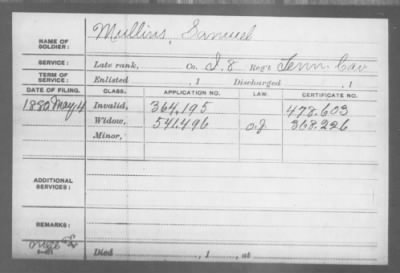 NAME OF SOLDIER: Mullins, Samuel
SERVICE: Late rank, Co. I. 8 Reg't Tenn. Cav
TERM OF SERVICE: Enlisted , 1 Discharged , 1
DATE OF FILING. CLASS. APPLICATION NO. LAW. CERTIFICATE NO.
1880 May 4 Invalid, 364,195 478,603
Widow, 541,496 O.L. 368,226
Minor,
ADDITIONAL SERVICES:
REMARKS:
Died , 1 , at